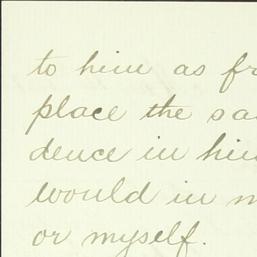 to him as fr
place the sa
dence in him
would in m
or myself.